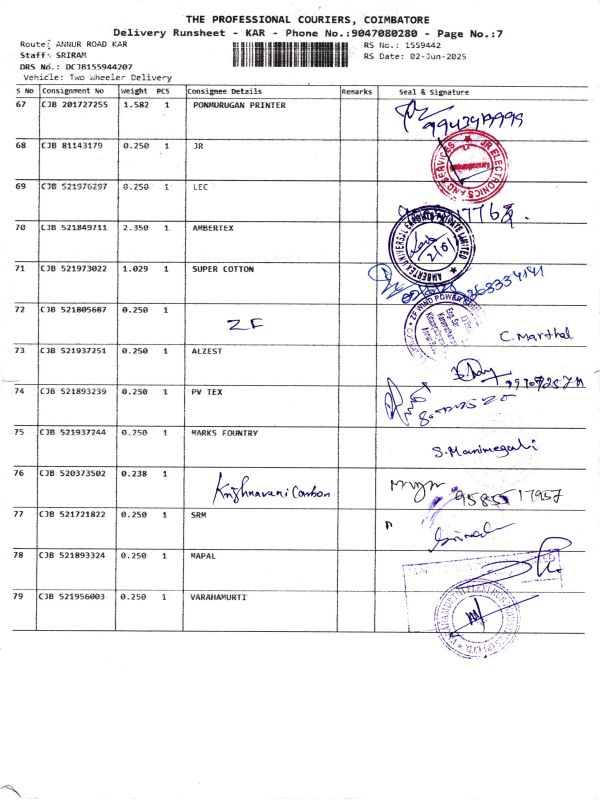 THE PROFESSIONAL COURIERS, COIMBATORE
Delivery Runsheet - KAR - Phone No.:9047080280 - Page No.:7
Route: ANNUR ROAD KAR
RS No.: 1559442
Staff: SRIRAM
RS Date: 02-Jun-2025
DRS No.: DCJB155944207
Vehicle: Two Wheeler Delivery
S No Consignment No Weight PCS Consignee Details Remarks Seal & Signature
67 CJB 201727255 1.582 1 PONMURUGAN PRINTER
68 CJB 81143179 0.250 1 JR
JR ELECTRONICS AND SERVICES
69 CJB 521976297 0.250 1 LEC
70 CJB 521849711 2.350 1 AMBERTEX
AMBERTEX UNIVERSAL EXPORTS PRIVATE LIMITED
2/6/
71 CJB 521973022 1.029 1 SUPER COTTON
72 CJB 521805687 0.250 1
ZF
ZF WIND POWER
C. Marthal
73 CJB 521937251 0.250 1 ALZEST
74 CJB 521893239 0.250 1 PV TEX
75 CJB 521937244 0.250 1 MARKS FOUNTRY
S. Manimegali
76 CJB 520373502 0.238 1
Krishnaveni Carbon
95855 17957
77 CJB 521721822 0.250 1 SRM
78 CJB 521893324 0.250 1 MAPAL
79 CJB 521956003 0.250 1 VARAHAMURTI